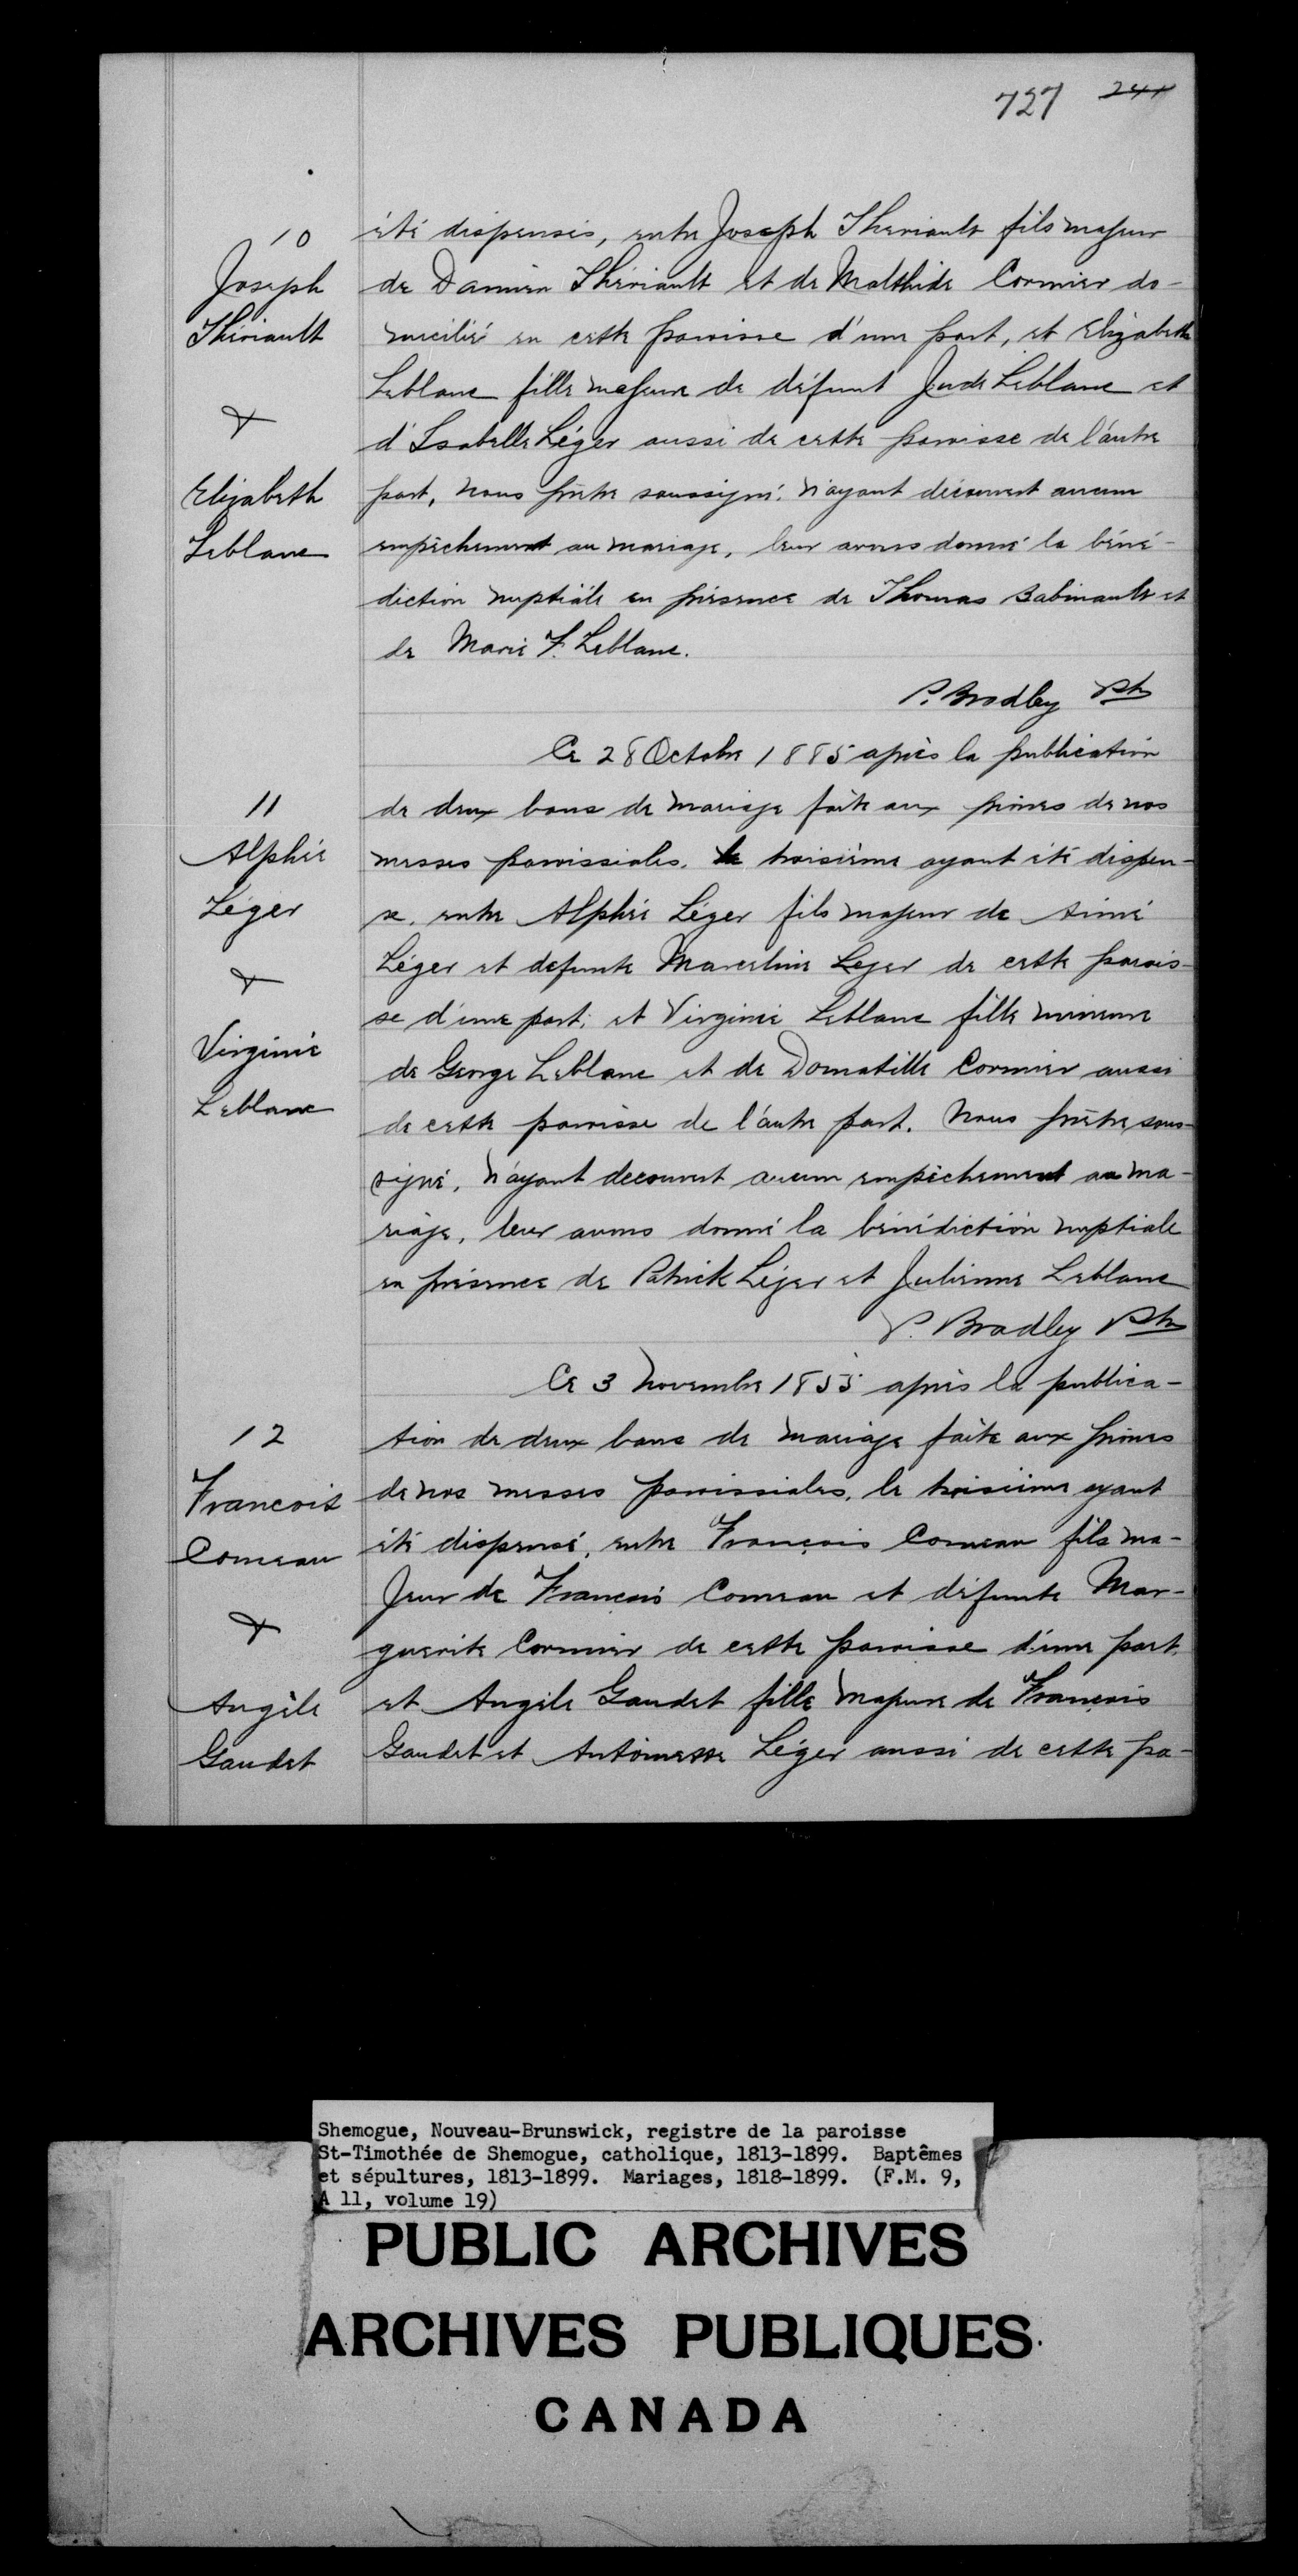 727 241
10
Joseph
Thériault
&
Elizabeth
Leblanc
été dispensés, entre Joseph Theriault fils majeur
de Damien Thériault et de Malthide Cormier do-
micilié en cette paroisse d'une part, et Elizabeth
Leblanc fille majeure de défunt Jude Leblanc et
d'Isabelle Léger aussi de cette paroisse de l'autre
part, nous prêtre soussigné, n'ayant découvert aucun
empêchement au mariage, leur avons donné la béné-
diction nuptiale en présence de Thomas Babinault et
de Marie F. Leblanc.
P. Bradley Ptre
11
Alphée
Léger
&
Virginie
Leblanc
Ce 28 Octobre 1885 après la publication
de deux bans de mariage faite aux prônes de nos
messes paroissiales, le troisième ayant été dispen-
sé, entre Alphée Léger fils majeur de Aimé
Léger et defunte Marceline Leger de cette parois-
se d'une part, et Virginie Leblanc fille mineure
de George Leblanc et de Domatille Cormier aussi
de cette paroisse de l'autre part. Nous prêtre sous-
signé, n'ayant decouvert aucun empêchement au ma-
riage, leur avons donné la bénédiction nuptiale
en présence de Patrick Léger et Julienne Leblanc
P. Bradley Ptre
12
Francois
Comeau
&
Angèle
Gaudet
Ce 3 Novembre 1885 après la publica-
tion de deux bans de mariage faite aux prônes
de nos messes paroissiales, le troisième ayant
été dispensé, entre François Comeau fils ma-
jeur de Francois Comeau et défunte Mar-
guerite Cormier de cette paroisse d'une part,
et Angèle Gaudet fille majeure de François
Gaudet et Antoinette Léger aussi de cette pa-
Shemogue, Nouveau-Brunswick, registre de la paroisse
St-Timothée de Shemogue, catholique, 1813-1899. Baptêmes
et sépultures, 1813-1899. Mariages, 1818-1899. (F.M. 9,
A 11, volume 19)
PUBLIC ARCHIVES
ARCHIVES PUBLIQUES
CANADA